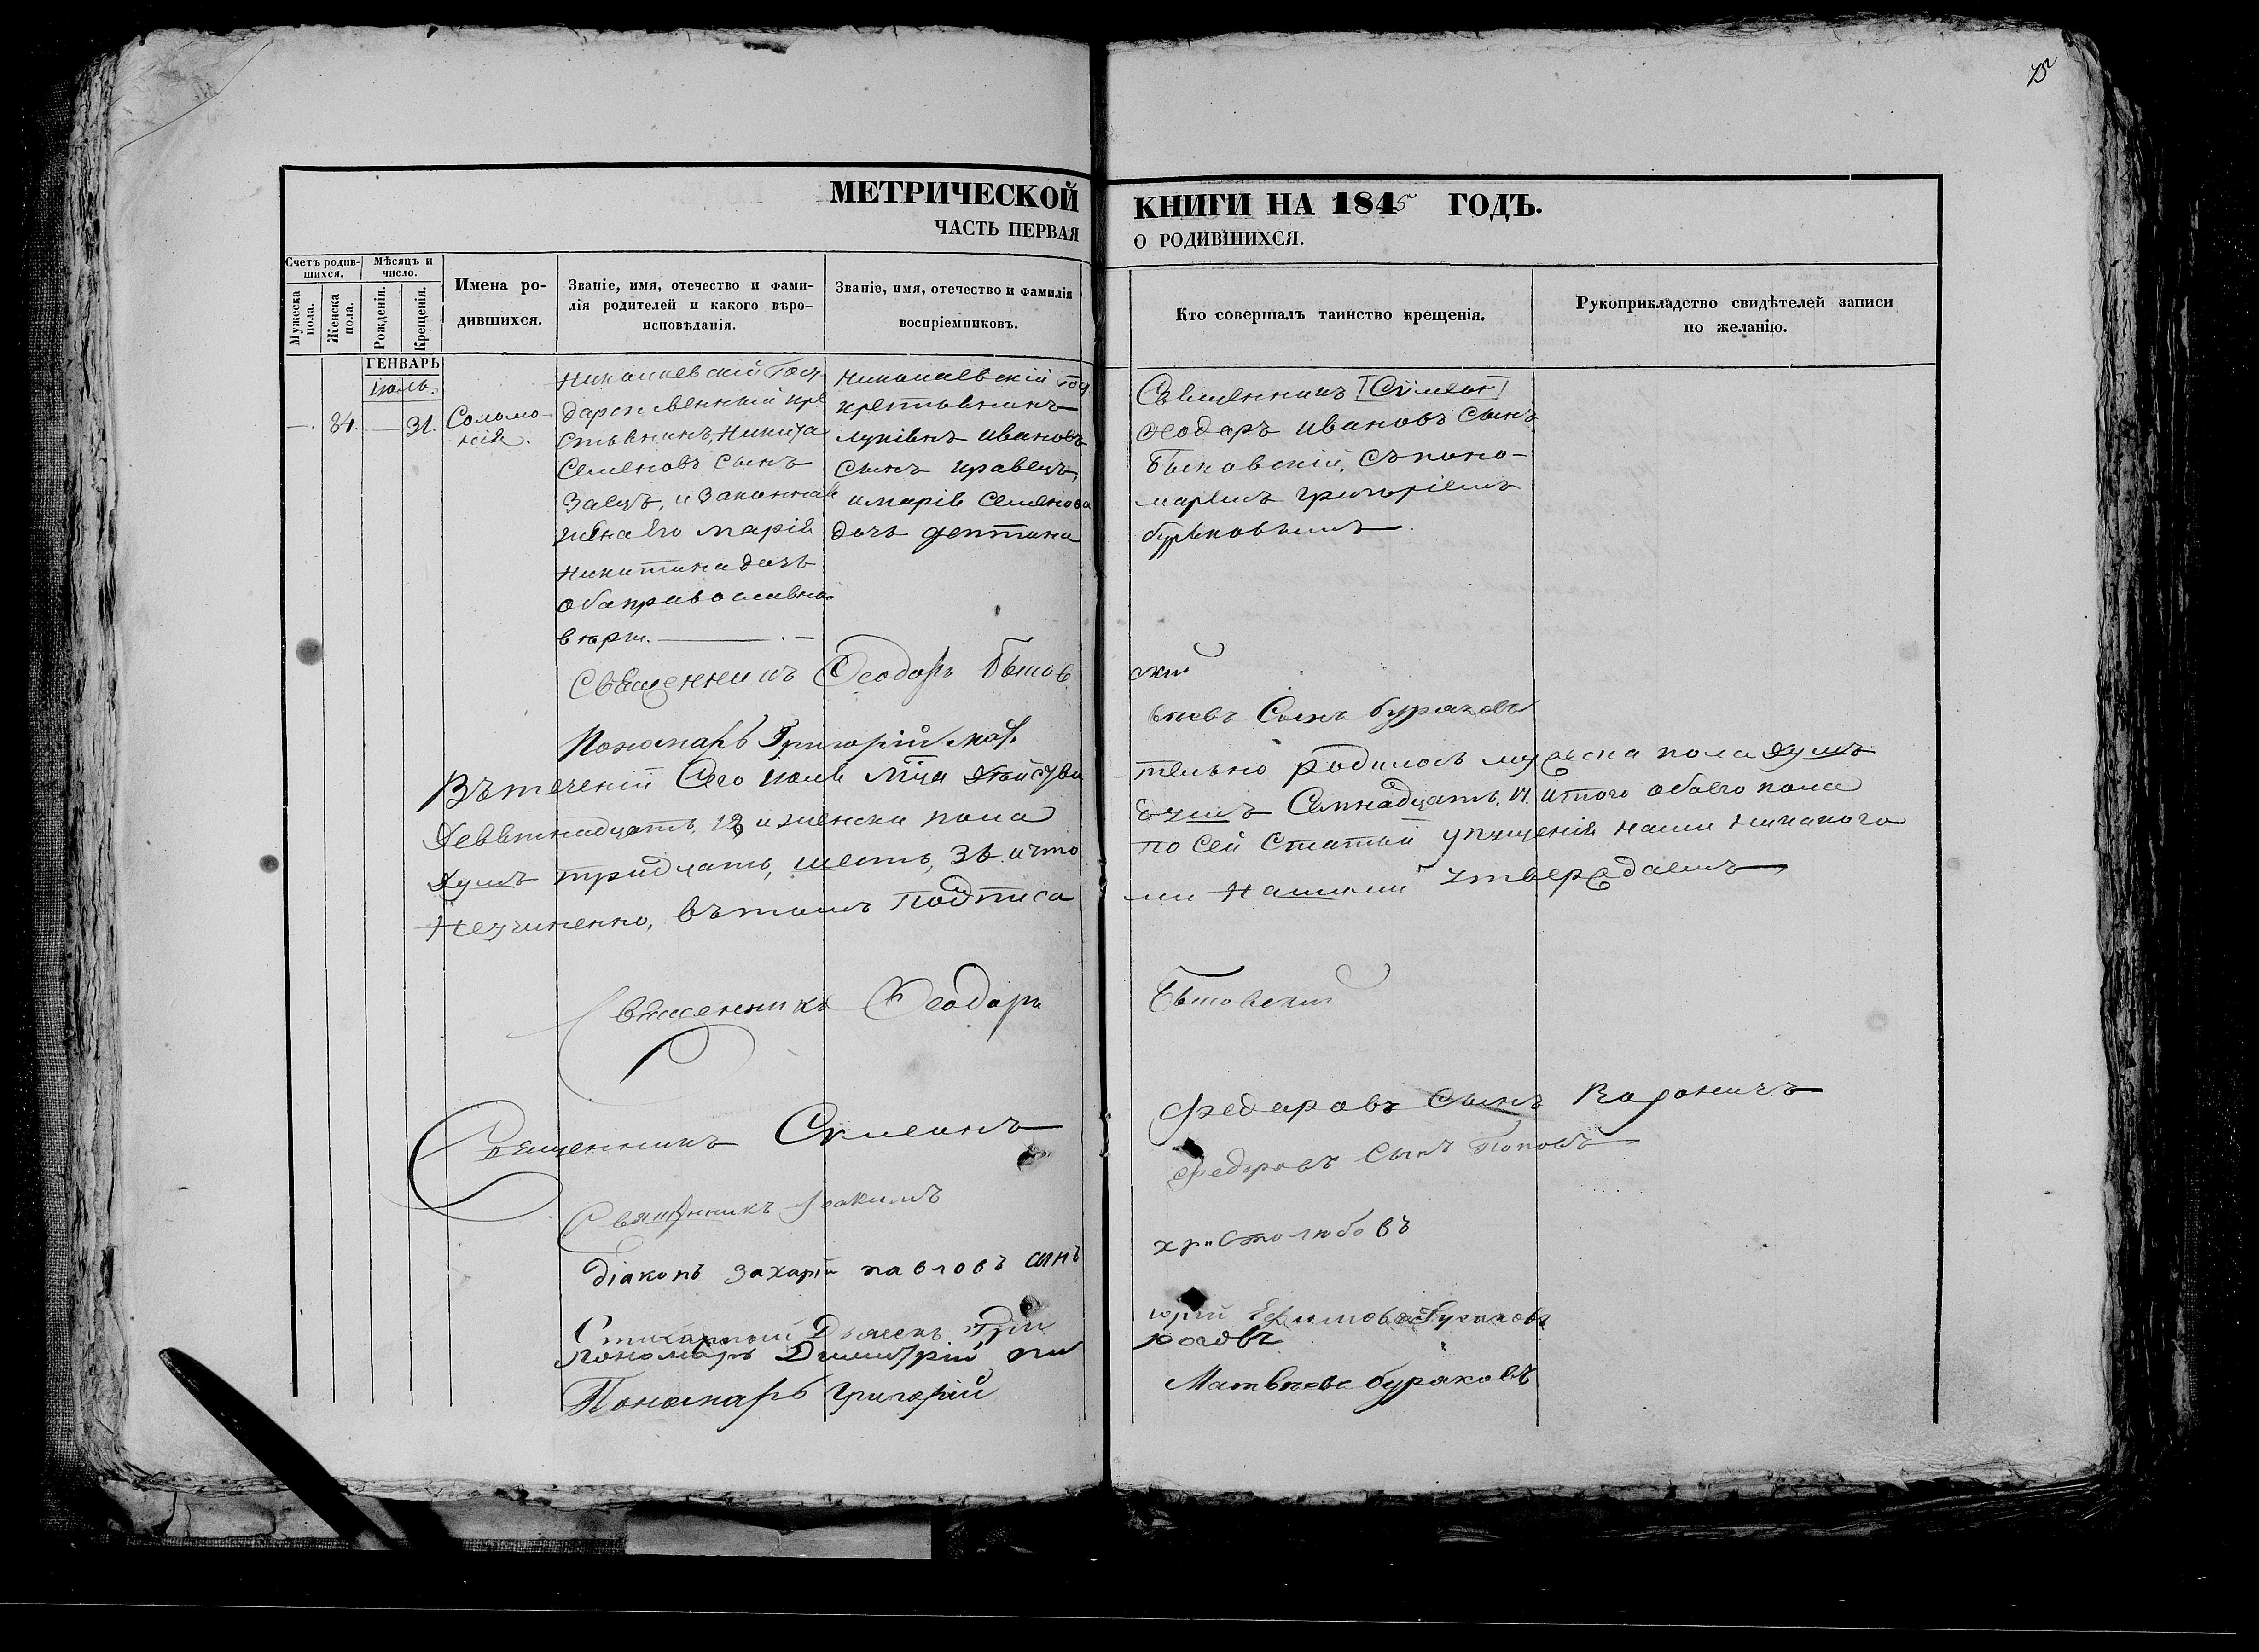 75
МЕТРИЧЕСКОЙ КНИГИ НА 1845 ГОДЪ.
ЧАСТЬ ПЕРВАЯ О РОДИВШИХСЯ.
Счетъ родив-
шихся.
Мужеска пола.
Женска пола.
Мѣсяцъ и
число.
Рожденія.
Крещенія.
Имена ро-
дившихся.
Званіе, имя, отечество и фами-
лія родителей и какого вѣро-
исповѣданія.
Званіе, имя, отечество и фамилія
воспріемниковъ.
Кто совершалъ таинство крещенія.
Рукоприкладство свидѣтелей записи
по желанію.
ГЕНВАРЬ
Іюль.
—. 84. — 31.
Соломо-
нія.
Николаевскій Госу
дарственный кре
стьянинъ, Никита
Семеновъ сынъ
Заецъ, и Законная
жена его Марія
Никитина дочь
оба православна
Николаевскій гос
крестьянинъ
Иванов
сынъ Кравецъ,
и марія Семенова
дочь
Священникъ [Симеон]
Феодоръ Ивановъ Сынъ
Быковскій, съ поно-
маремъ Григоріемъ
Буряковымъ
Священникъ Феодоръ Быков
скій
Пономарь Григорій Мат
вѣевъ Сынъ Буряковъ
Въ теченіи Сего Іюля Мца действи тельно родилось мужеска пола душъ
Девятнадцать, 19 и женска пола Семнадцать, 17. Итого обоего пола
душъ тридцать, шесть, 36. и что по сей Статьи упущенія нами никакого
Неучиненно, въ томъ подписа ми Нашими утверждаемъ
Священникъ Феодоръ Быковский
Священникъ Симеонъ Федоровъ Сынъ
Священникъ Іоакимъ Федоровъ Сынъ Поповъ
Діаконъ Захарій Павловъ сынъ Христолюбовъ
Стихарный Дьячекъ Гри горій Ефимовъ
Пономарь Димитрій Пи роговъ
Пономарь Григорій Матвѣевъ Буряковъ